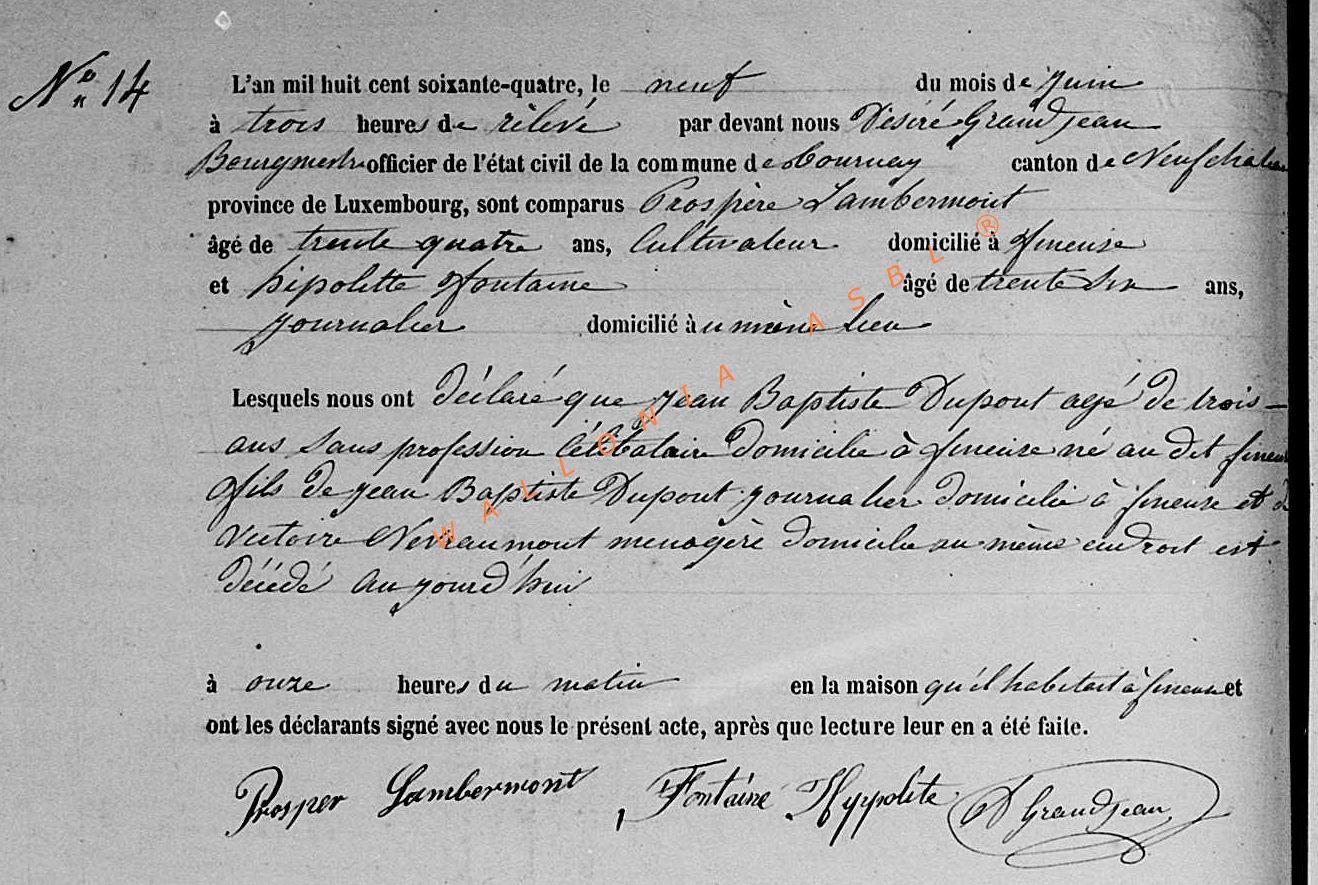 N° 14
L'an mil huit cent soixante-quatre, le neuf du mois de juin
à trois heures de rélévé par devant nous Désiré Grandjean
Bourgmestre officier de l'état civil de la commune de Tournay canton de Neufchateau
province de Luxembourg, sont comparus Prospère Lambermont
âgé de trente quatre ans, Cultivateur domicilié à fineuse
et hipolitte ffontaine âgé de trente six ans,
journalier domicilié à u même lieu
Lesquels nous ont déclaré que jean Baptiste Dupont agé de trois
ans sans profession Célibataire domicilié à fineuse né au dit fineuse
fils de jean Baptiste Dupont journalier domicilié à fineuse et d
Victoire menagère domicilié au même endroit est
décédé aujourd'hui
à onze heures du matin en la maison qu'il habitait à fineuse et
ont les déclarants signé avec nous le présent acte, après que lecture leur en a été faite.
Prosper Lambermont Fontaine Hyppolite D Grandjean
WALLONIA ASBL ®